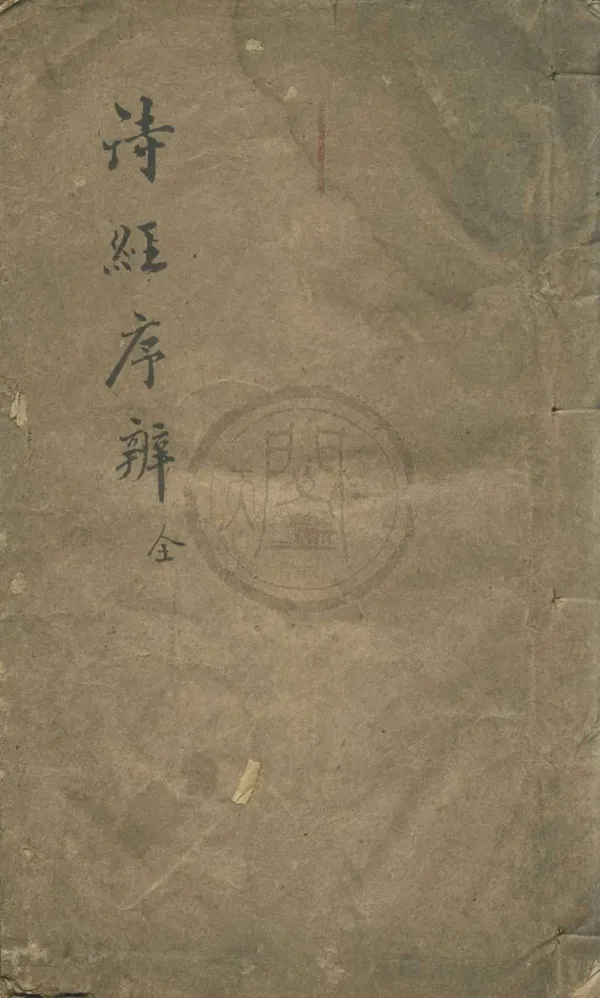 詩經序辨 全